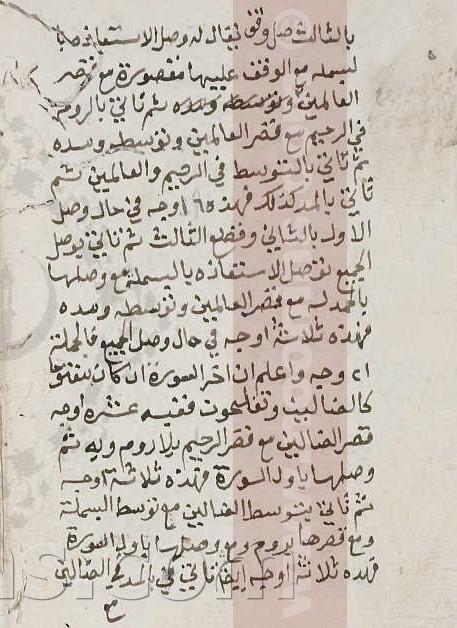 بالثالث صل وقف يقال له وصل الاستعاذه با
لبسمله مع الوقف عليها مقصورة مع قصر
العالمين وتوسطه ومده ثم تاتي بالروم
في الرحيم مع قصر العالمين وتوسطه ومده
ثم تاتي بالتوسط في الرحيم والعالمين ثم
تاتي بالمد كذلك فهذه اوجه في حال وصل
الاول بالثاني وقطع الثالث ثم تاتي بوصل
الجميع الاستعاذه بالبسملة مع وصلها
بالحمدله مع قصر العالمين وتوسطه ومده
فهذه ثلاثة اوجه في حال وصل الجميع فالجملة
٢١ وجه واعلم ان اخر السورة ان كان
كالضالين وتفلحون ففيه عشره اوجه
قصر الضالين مع قصر الرحيم بلا روم وبه ثم
وصلها باول السورة فهذه ثلاثة اوجه
ثم تاتي بتوسط الضالين مع توسط البسملة
ومع قصرها بروم ومع وصلها باول السورة
فهذه ثلاثة اوجه ايضا تاتي في الضالين
مع